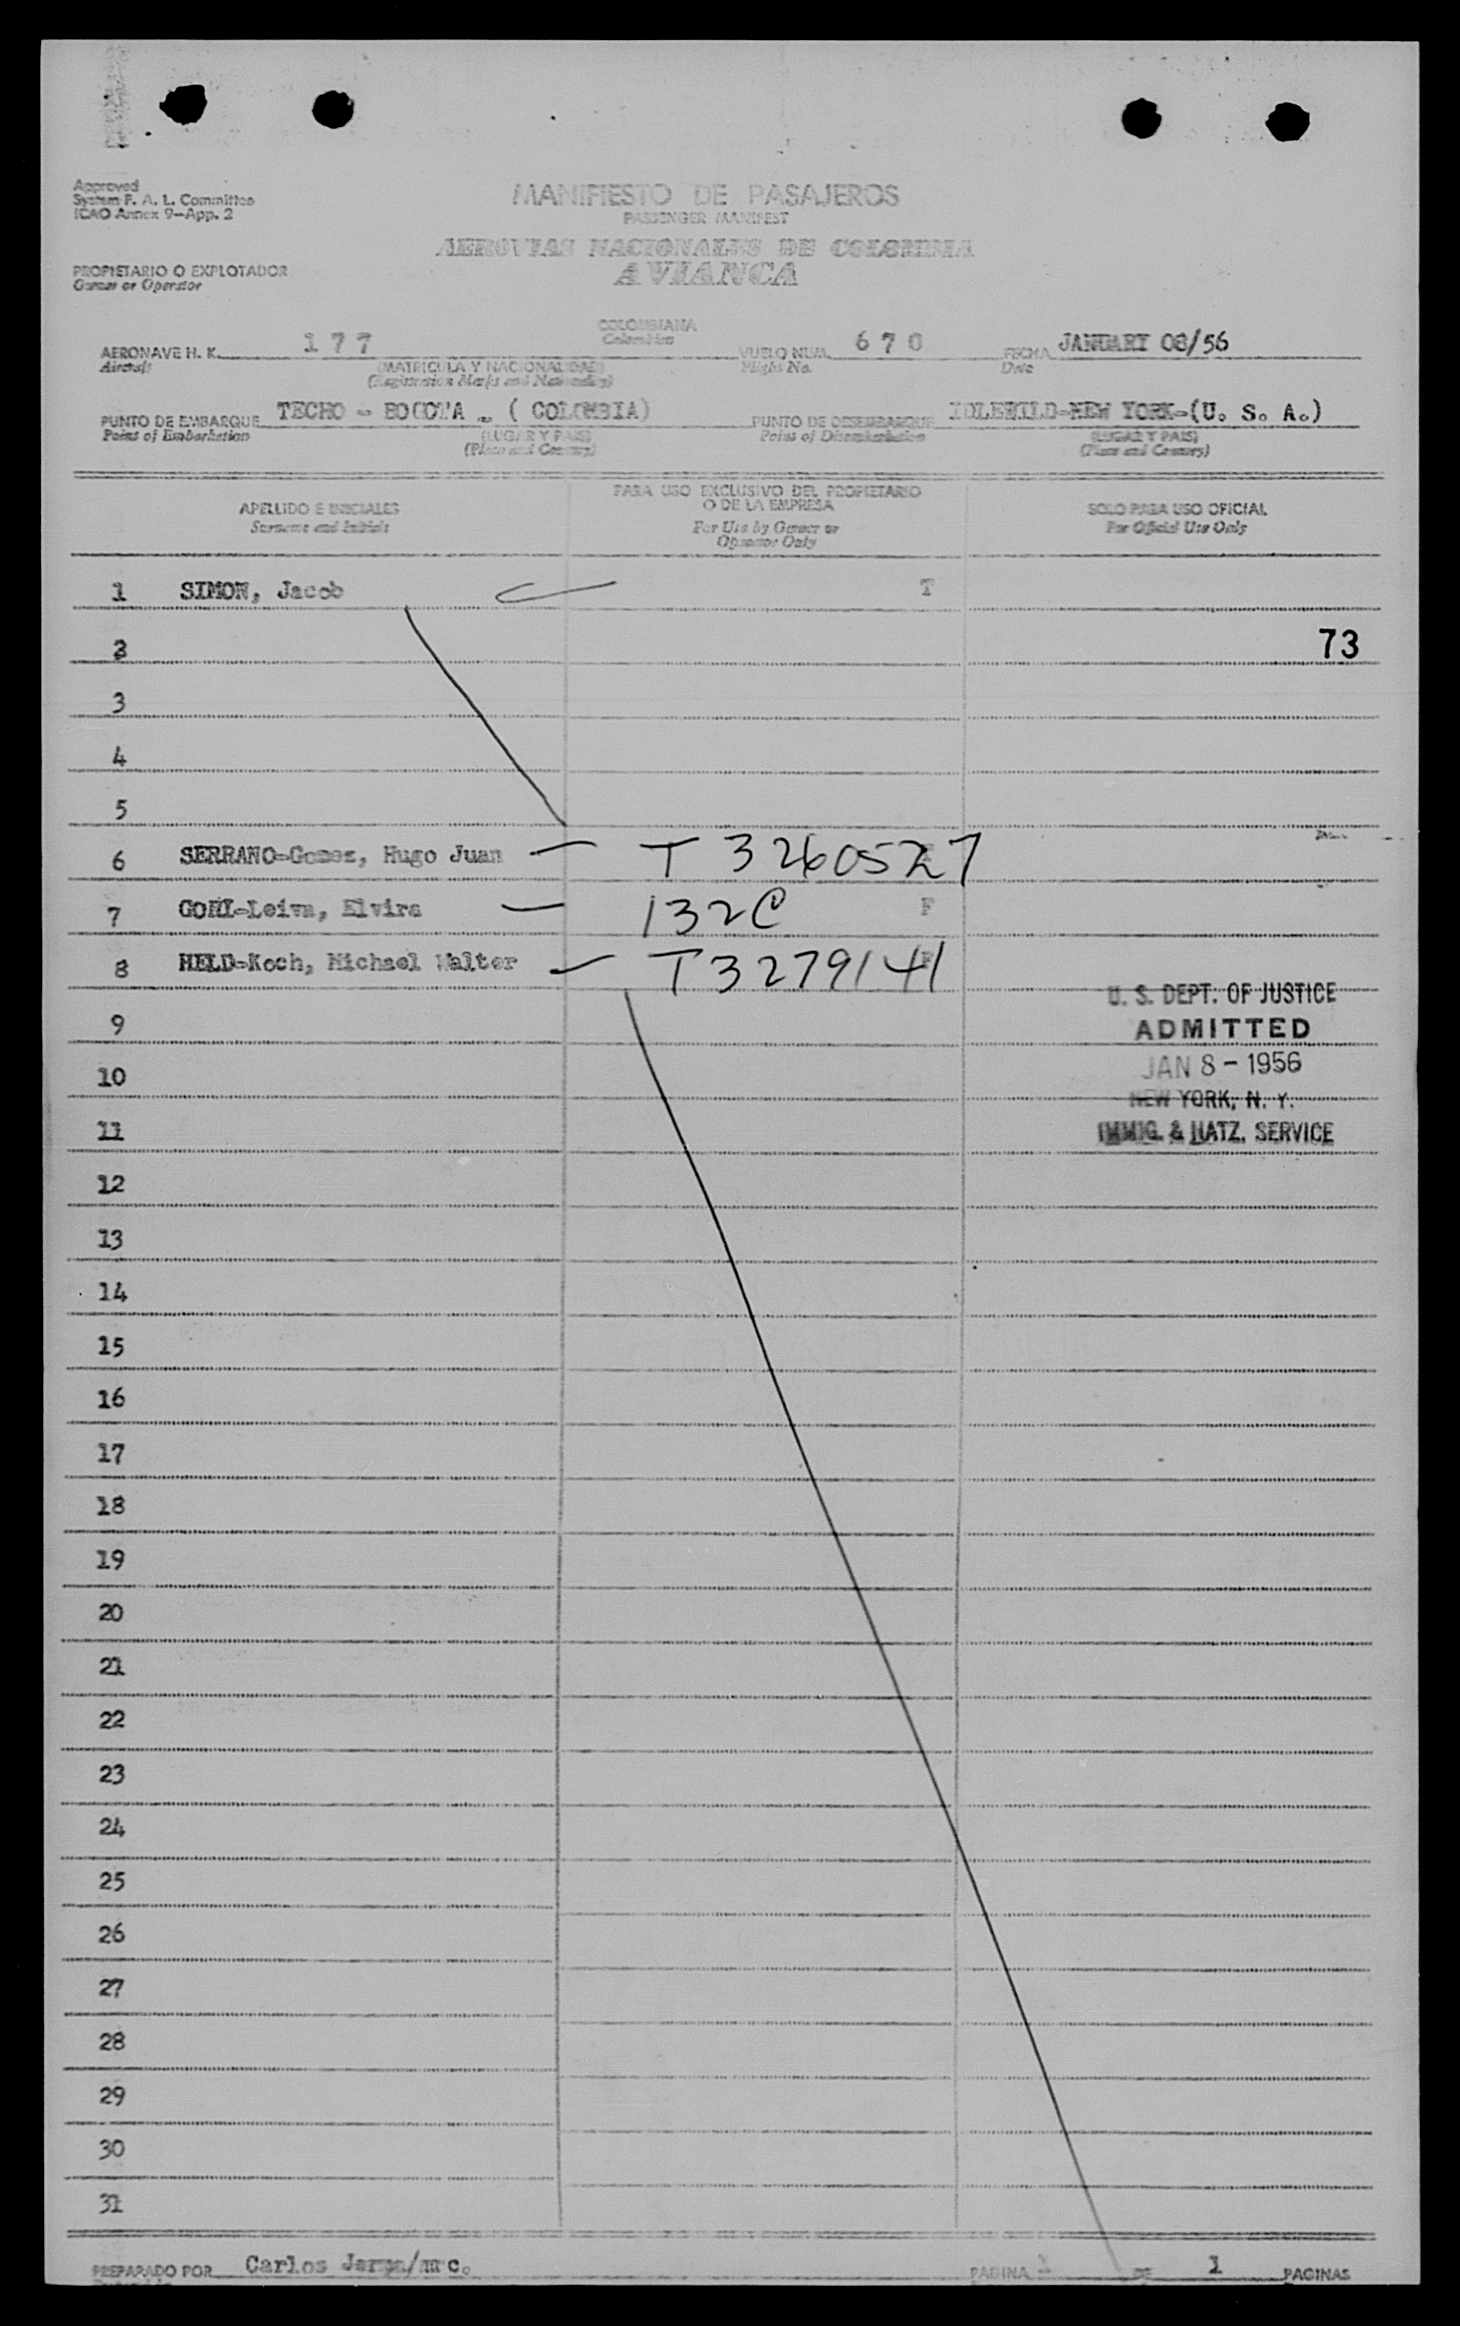 Approved
System F. A. L. Committee
ICAO Annex 9—App. 2
MANIFIESTO DE PASAJEROS
PASSENGER MANIFEST
AEROVIAS NACIONALES DE COLOMBIA
AVIANCA
PROPIETARIO O EXPLOTADOR
Owner or Operator
COLOMBIANA
Colombian
AERONAVE H. K. 177 VUELO NUM. 670 FECHA JANUARY 08/56
Aircraft (MATRICULA Y NACIONALIDAD) Flight No. Date
(Registration Marks and Nationality)
PUNTO DE EMBARQUE TECHO - BOGOTA - ( COLOMBIA) PUNTO DE DESEMBARQUE IDLEWILD-NEW YORK-(U. S. A.)
Point of Embarkation (LUGAR Y PAIS) Point of Disembarkation (LUGAR Y PAIS)
(Place and Country) (Place and Country)
APELLIDO E INICIALES PARA USO EXCLUSIVO DEL PROPIETARIO O DE LA EMPRESA SOLO PARA USO OFICIAL
Surname and Initials For Use by Owner or Operator Only For Official Use Only
1 SIMON, Jacob T
2 73
3
4
5
6 SERRANO-Gomez, Hugo Juan — T 3260527
7 GORI-Leiva, Elvira — 132C F
8 HELD-Koch, Michael Walter — T3279141
U. S. DEPT. OF JUSTICE
9 ADMITTED
10 JAN 8 - 1956
NEW YORK, N. Y.
11 IMMIG. & NATZ. SERVICE
12
13
14
15
16
17
18
19
20
21
22
23
24
25
26
27
28
29
30
31
PREPARADO POR Carlos PAGINA 1 DE 1 PAGINAS